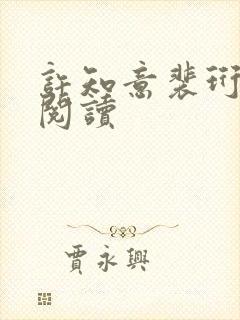 許知意裴珩
閱讀
賈永興